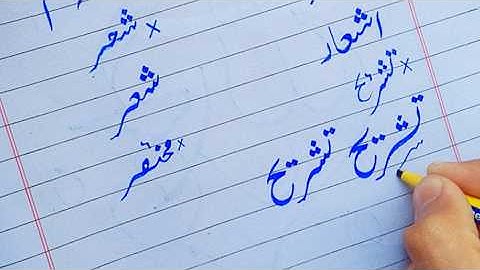 اشعار
× تشریح
تشریح
تشریح
× شعر
شعر
× مختصر